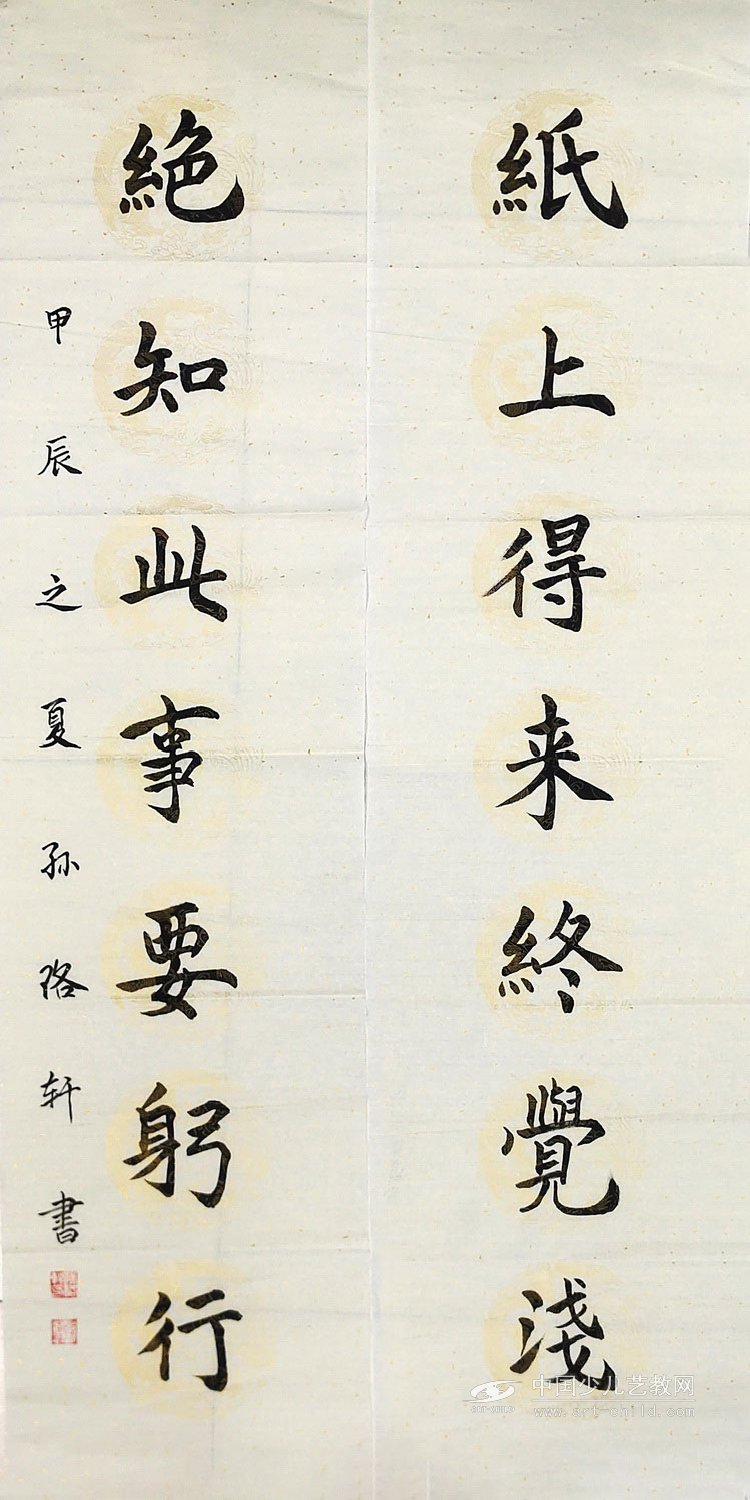 紙上得来終覺淺
絶知此事要躬行
甲辰之夏孙珞轩書
中国少儿艺教网
www.art-child.com